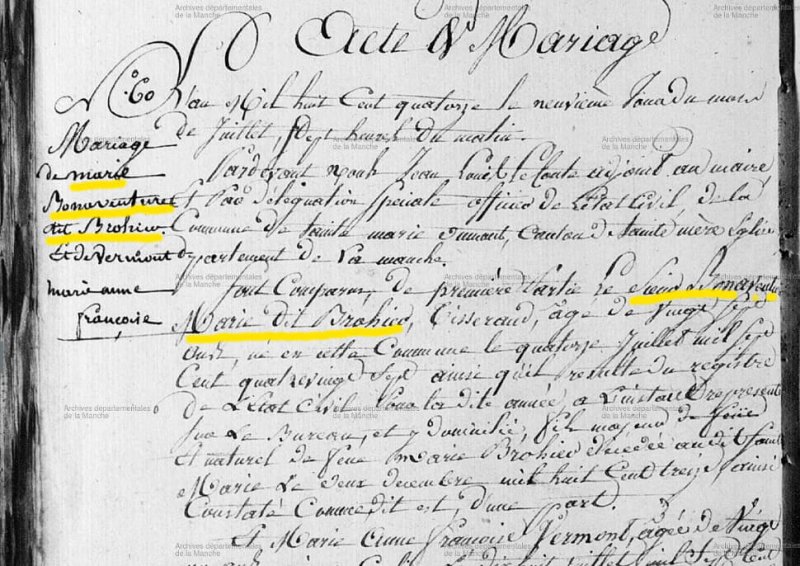 Acte de Mariage
N.º 60
Mariage
de marie
Bonaventure
dit Brohier.
Et de Vermont
marie anne
françoise
L'an Mil huit Cent quatorze le neuvième Jour du mois
de Juillet, Sept heures du matin.
Pardevant nous Jean Louis le Conte adjoint au maire,
Et Par délégation Speciale officier de L'état Civil de la
Commune de Sainte marie dumont, Canton de Sainte mère Eglise
Departement de La manche.
Sont Comparus, de première Partie Le Sieur Bonaventure
Marie Dit Brohier, Tisserand, âgé de Vingt Sept
ans, né en cette Commune le quatorze Juillet mil Sept
Cent quatrevingt Sept ainsi qu'il resulte du registre
De L'Etat Civil Pour la dite année, a L'instant representé
Sur Le Bureau, et y domicilié, fils majeur de
Et naturel de feue Marie Brohier décédée au dit Sainte
Marie Le deux decembre mil huit Cent treize, ainsi
Constaté Comme dit est, d'une part.
Et Marie Anne Françoise Vermont, âgée de Vingt
Juillet mil Sept Cent
Archives départementales
de la Manche